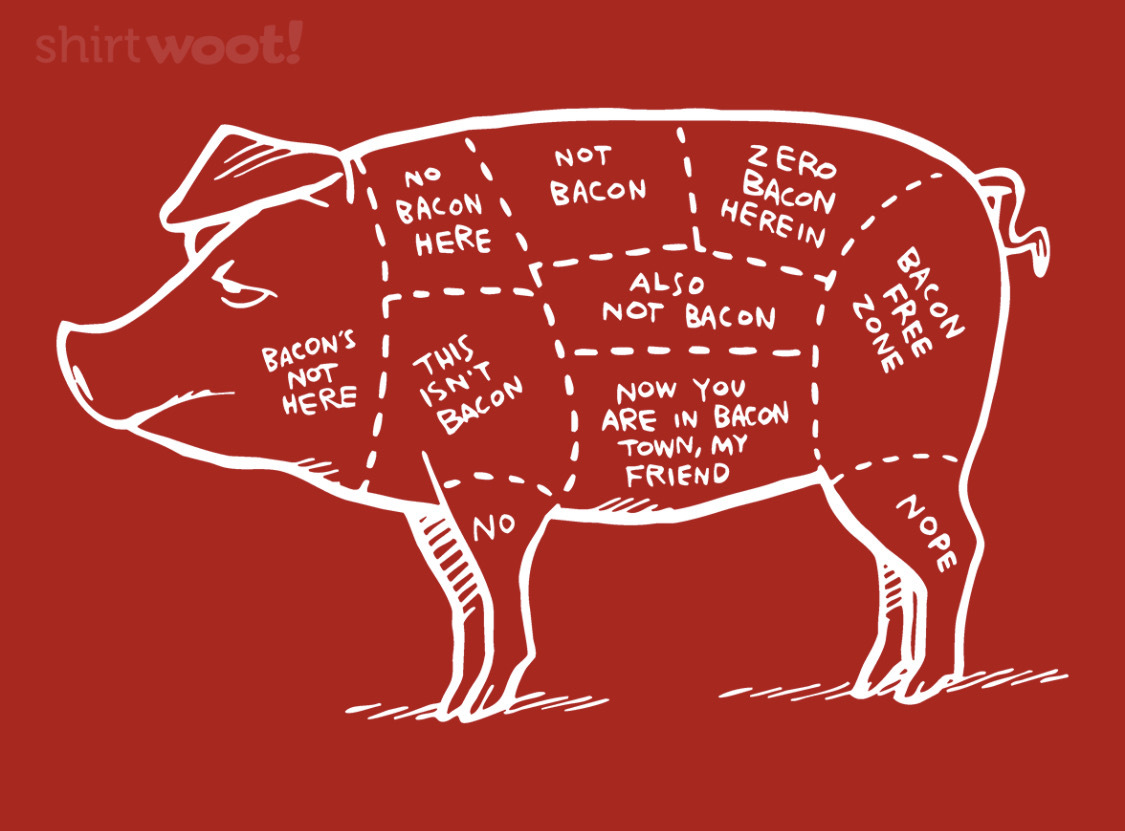 shirtwoot!
NO
BACON
HERE
NOT
BACON
ZERO
BACON
HEREIN
ALSO
NOT BACON
BACON
FREE
ZONE
BACON'S
NOT
HERE
THIS
ISN'T
BACON
NOW YOU
ARE IN BACON
TOWN, MY
FRIEND
NO
NOPE